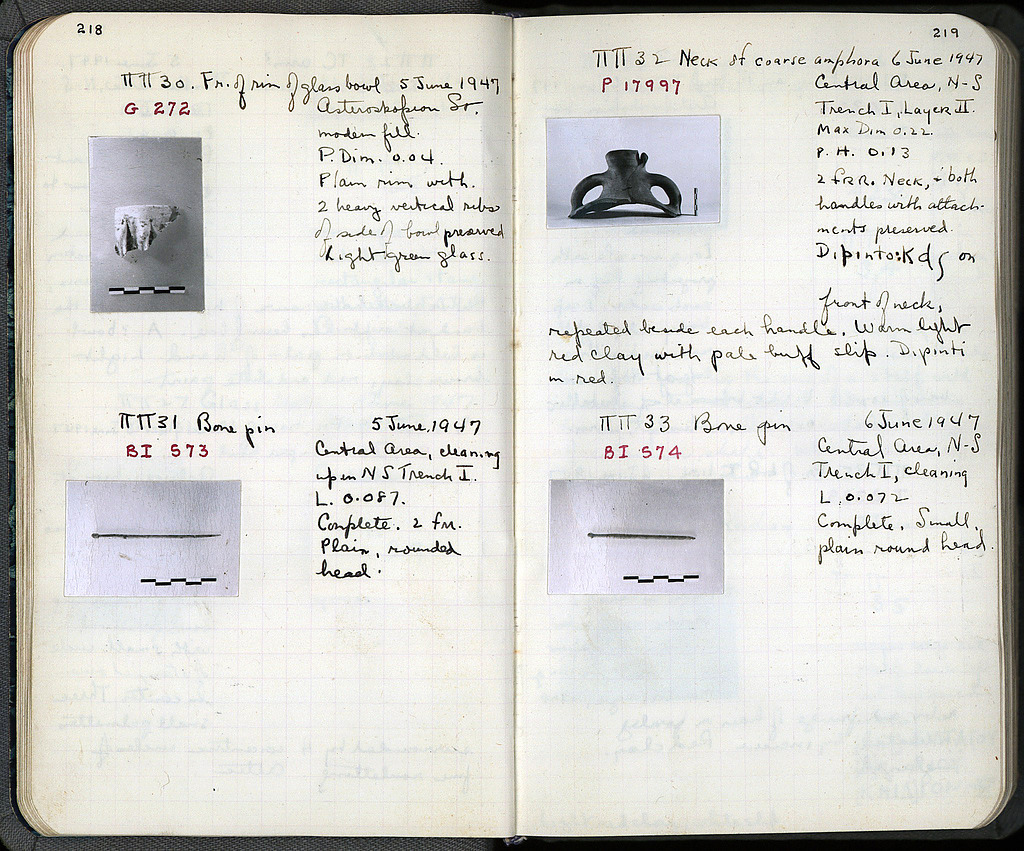 218
ΠΠ30. Fr. of rim of glass bowl 5 June 1947
G 272
Asteroskopion St.
modern fill.
P. Dim. 0.04.
Plain rim with
2 heavy vertical ribs
of side of bowl preserved
Light green glass.
ΠΠ31 Bone pin 5 June, 1947
BI 573
Central Area, cleaning
up in NS Trench I.
L. 0.087.
Complete. 2 fr.
Plain, rounded
head.
219
ΠΠ32 Neck of coarse amphora 6 June 1947
P 17997
Central Area, N-S
Trench I, Layer II.
Max Dim 0.22.
P. H. 0.13
2 frr. Neck, + both
handles with attach-
ments preserved.
Dipinto: on
front of neck,
repeated beside each handle. Warm light
red clay with pale buff slip. Dipinti
in red.
ΠΠ33 Bone pin 6 June 1947
BI 574
Central Area, N-S
Trench I, cleaning
L. 0.072
Complete. Small,
plain round head.